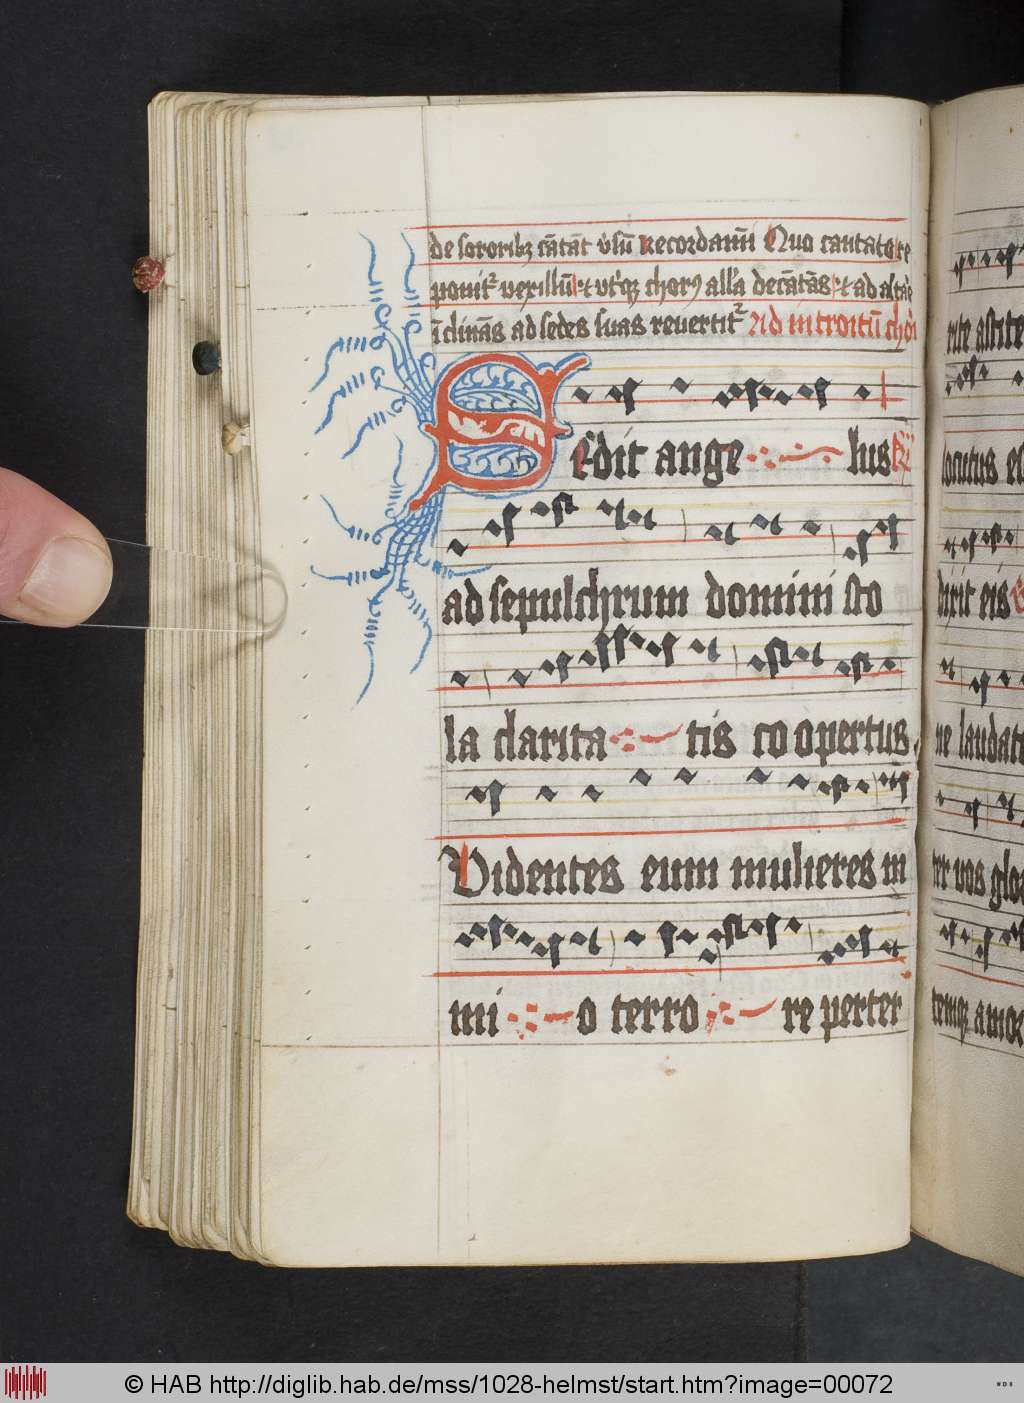 de sororibꝫ cātāt v̓sū Recordamī Quo cantato re
ponit᷑ vexillū et vt̓qꝫ chorꝰ all̓a decātās et ad altar̄
īclinās ad sedes suas revertit᷑ Ad introitū chori
SEdit ange lus
ad sepulchrum domini sto
la clarita tis co opertus
Videntes eum mulieres ni
mi o terro re perter
rite astite
locutus es
dixit eis
ne laudate
ter vos glo
© HAB http://diglib.hab.de/mss/1028-helmst/start.htm?image=00072